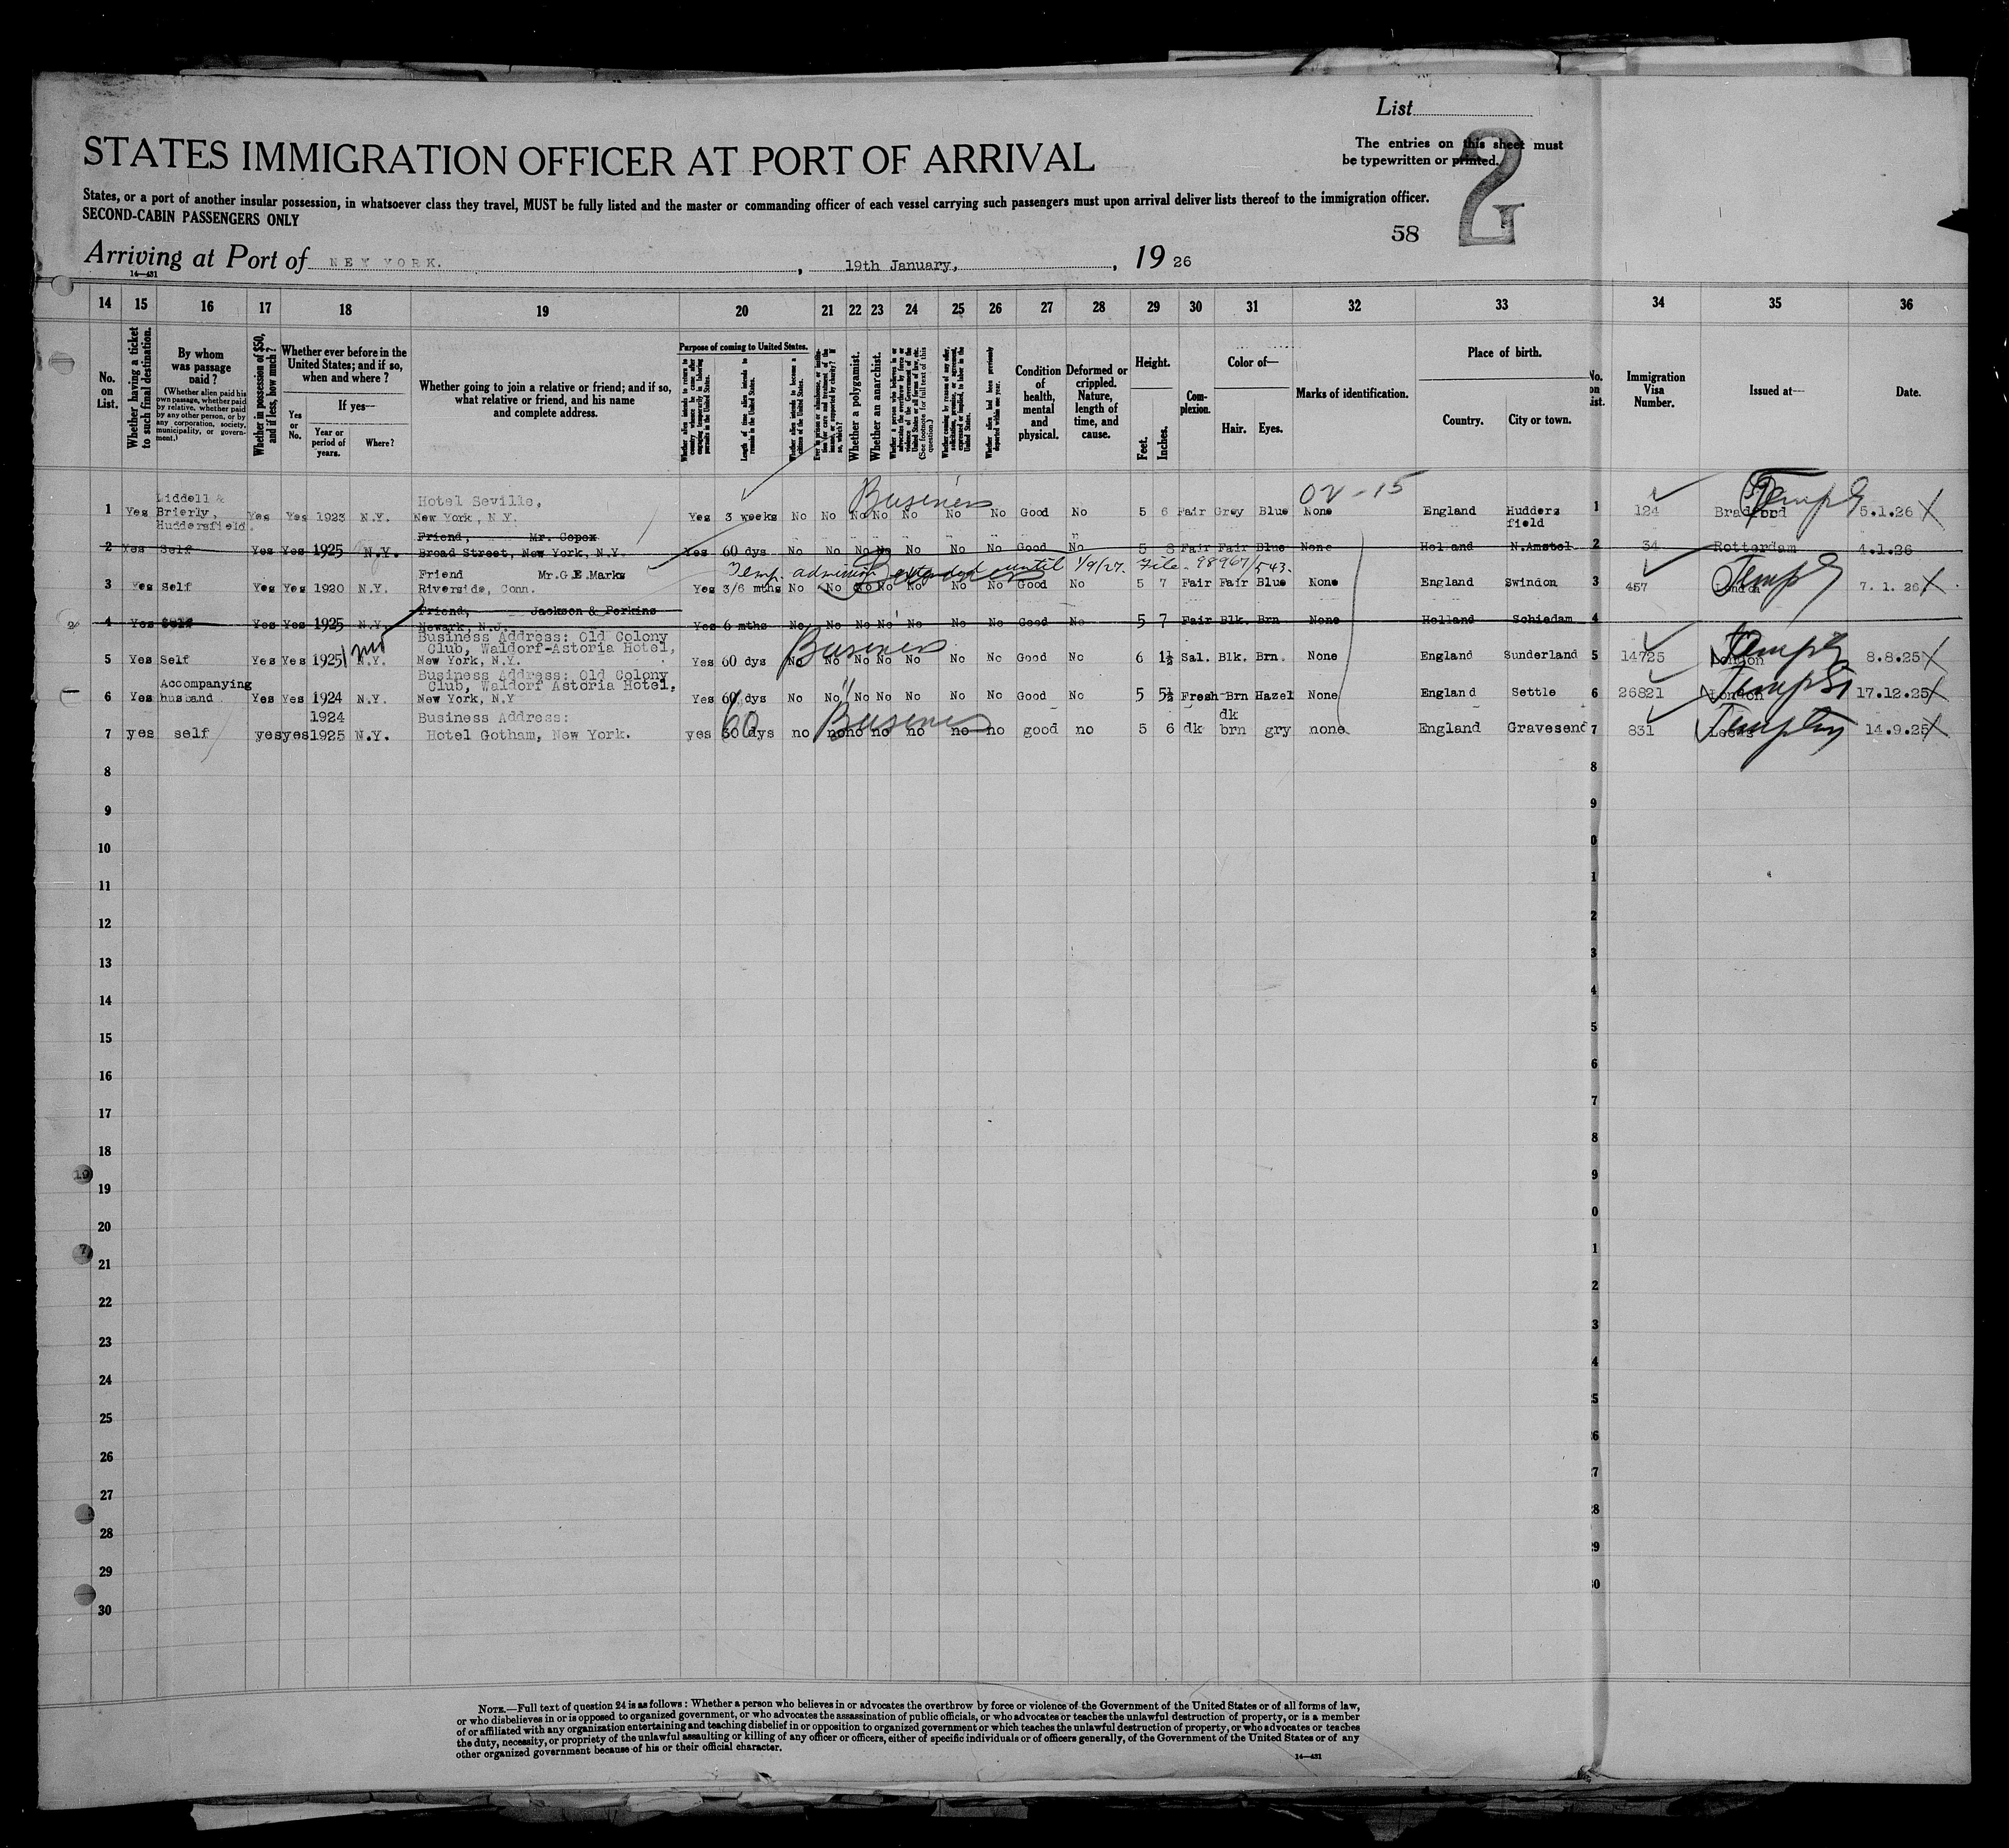 List
The entries on this sheet must
be typewritten or printed.
2
STATES IMMIGRATION OFFICER AT PORT OF ARRIVAL
States, or a port of another insular possession, in whatsoever class they travel, MUST be fully listed and the master or commanding officer of each vessel carrying such passengers must upon arrival deliver lists thereof to the immigration officer.
SECOND-CABIN PASSENGERS ONLY
58
Arriving at Port of NEW YORK. , 19th January, , 19 26
14—431
14 15 16 17 18 19 20 21 22 23 24 25 26 27 28 29 30 31 32 33 34 35 36
No. on List.
Whether having a ticket to such final destination.
By whom was passage paid?
(Whether alien paid his own passage, whether paid by relative, whether paid by any other person, or by any corporation, society, municipality, or government.)
Whether in possession of $50, and if less, how much?
Whether ever before in the United States; and if so, when and where?
Yes or No.
If yes—
Year or period of years.
Where?
Whether going to join a relative or friend; and if so, what relative or friend, and his name and complete address.
Purpose of coming to United States.
Whether alien intends to return to country whence he came after engaging temporarily in laboring pursuits in the United States.
Length of time alien intends to remain in the United States.
Whether alien intends to become a citizen of the United States.
Whether a polygamist.
Whether an anarchist.
Condition of health, mental and physical.
Deformed or crippled. Nature, length of time, and cause.
Height.
Feet.
Inches.
Complexion.
Color of—
Hair.
Eyes.
Marks of identification.
Place of birth.
Country.
City or town.
No. on list.
Immigration Visa Number.
Issued at—
Date.
Business
OV-15
1 Yes Liddell & Brierly, Huddersfield. Yes Yes 1923 N.Y. Hotel Seville, New York, N.Y. Yes 3 weeks No No No No No No No Good No 5 6 Fair Grey Blue None England Hudders field 1 124 Bradford 5.1.26
2 Yes Self Yes Yes 1925 N.Y. Friend, Mr. Copex Broad Street, New York, N.Y. Yes 60 dys No No No No No No No Good No 5 8 Fair Fair Blue None Holland N.Amstel 2 34 Rotterdam 4.1.26
Temp. admission extended until 1/9/27. File. 98967/543.
3 Yes Self Yes Yes 1920 N.Y. Friend Mr.G.E.Marks Riverside, Conn. Yes 3/6 mths No No No No No No No Good No 5 7 Fair Fair Blue None England Swindon 3 457 London 7.1.26
4 Yes Self Yes Yes 1925 N.Y. Friend, Jackson & Perkins Newark, N.J. Yes 6 mths No No No No No No No Good No 5 7 Fair Blk. Brn None Holland Schiedam 4
Business
5 Yes Self Yes Yes 1925 N.Y. Business Address: Old Colony Club, Waldorf-Astoria Hotel, New York, N.Y. Yes 60 dys No No No No No No No Good No 6 1½ Sal. Blk. Brn. None England Sunderland 5 14725 London 8.8.25
6 Yes Accompanying husband Yes Yes 1924 N.Y. Business Address: Old Colony Club, Waldorf Astoria Hotel, New York, N.Y Yes 60 dys No No No No No No No Good No 5 5½ Fresh Brn Hazel None England Settle 6 26821 London 17.12.25
Business
7 yes self yes yes 1924 1925 N.Y. Business Address: Hotel Gotham, New York. yes 60 dys no no no no no no no good no 5 6 dk dk brn gry none England Gravesend 7 831 Leeds 14.9.25
8 8
9 9
10 0
11 1
12 2
13 3
14 4
15 5
16 6
17 7
18 8
19 9
20 0
21 1
22 2
23 3
24 4
25 5
26 6
27 7
28 8
29 9
30 0
NOTE.—Full text of question 24 is as follows: Whether a person who believes in or advocates the overthrow by force or violence of the Government of the United States or of all forms of law,
or who disbelieves in or is opposed to organized government, or who advocates the assassination of public officials, or who advocates or teaches the unlawful destruction of property, or is a member
of or affiliated with any organization entertaining and teaching disbelief in or opposition to organized government or which teaches the unlawful destruction of property, or who advocates or teaches
the duty, necessity, or propriety of the unlawful assaulting or killing of any officer or officers, either of specific individuals or of officers generally, of the Government of the United States or of any
other organized government because of his or their official character.
14—431